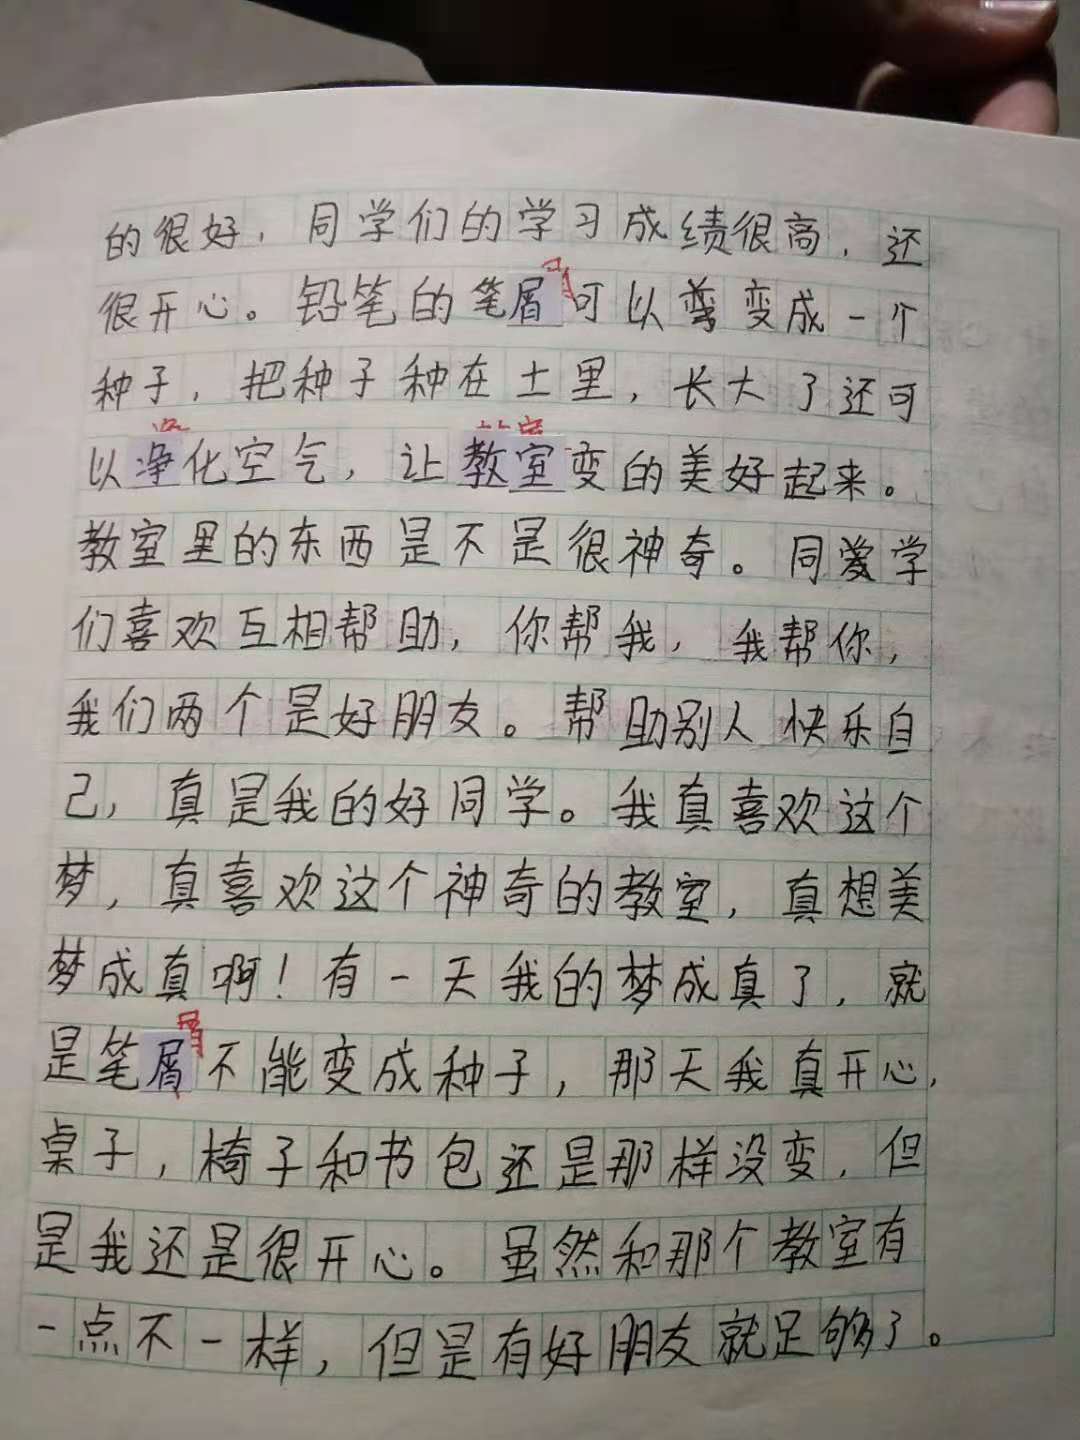 的很好，同学们的学习成绩很高，还
很开心。铅笔的笔屑可以弯变成一个
种子，把种子种在土里，长大了还可
以净化空气，让教室变的美好起来。
教室里的东西是不是很神奇。同爱学
们喜欢互相帮助，你帮我，我帮你，
我们两个是好朋友。帮助别人快乐自
己，真是我的好同学。我真喜欢这个
梦，真喜欢这个神奇的教室，真想美
梦成真啊！有一天我的梦成真了，就
是笔屑不能变成种子，那天我真开心，
桌子，椅子和书包还是那样没变，但
是我还是很开心。虽然和那个教室有
一点不一样，但是有好朋友就足够了。